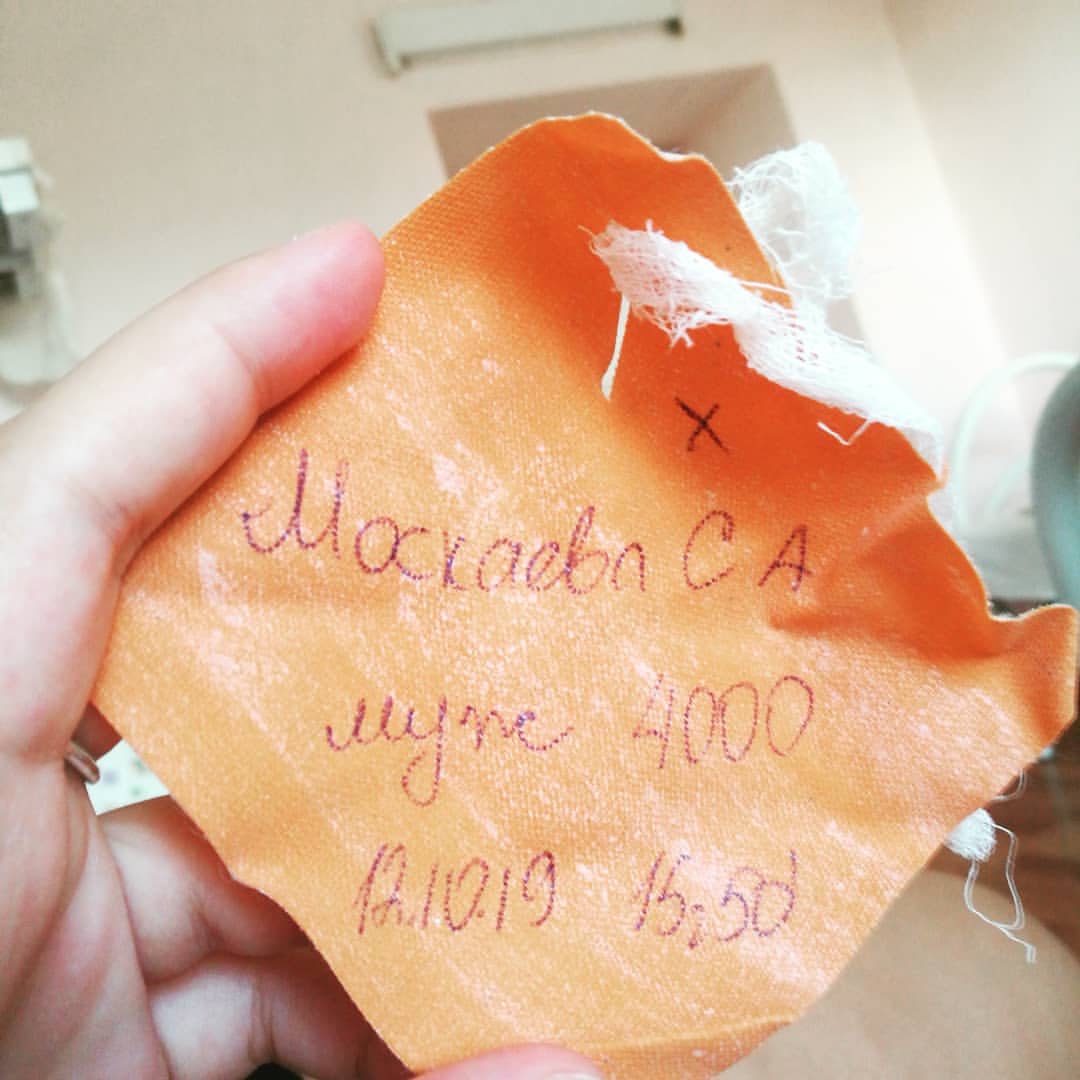 X
Москаева С А
муж 4000
12.10.19 15:50